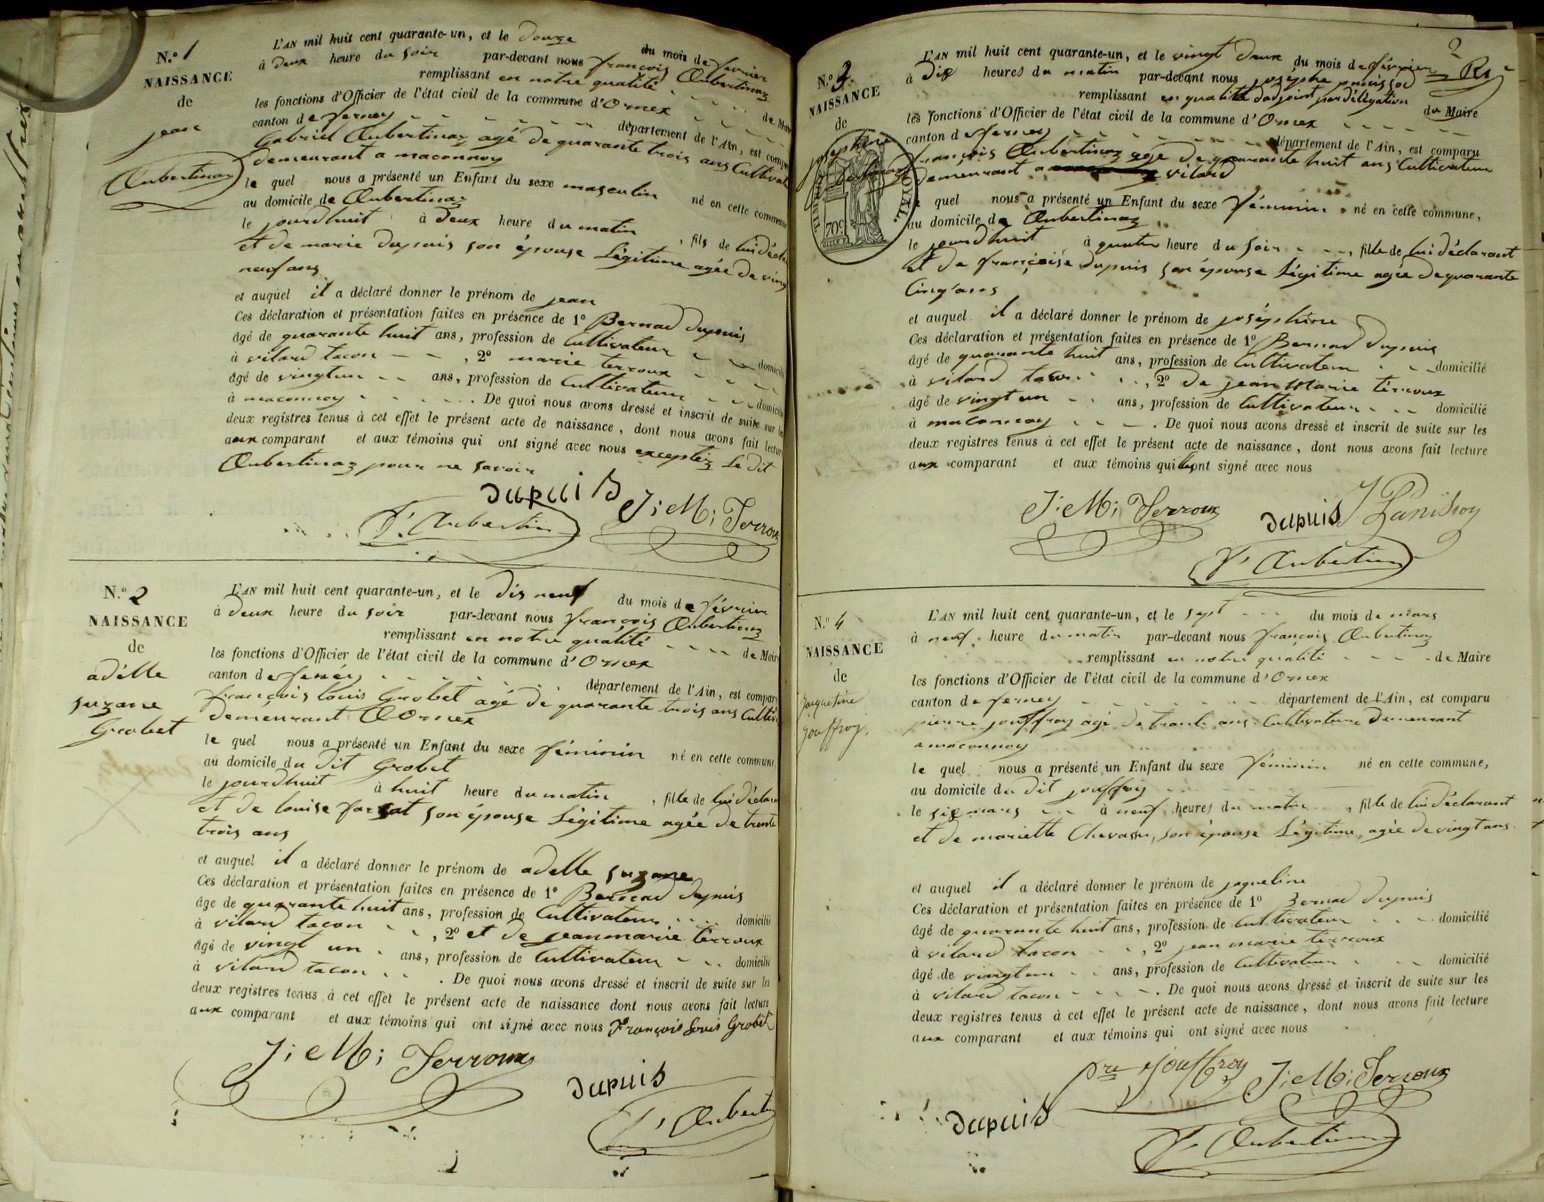 N.º 1
NAISSANCE
de
jean
Aubertinaz
L'AN mil huit cent quarante-un, et le douze du mois de février
à deux heure du soir par-devant nous françois Aubertinaz
remplissant en notre qualité de Maire
les fonctions d'Officier de l'état civil de la commune d'Ornex
canton de ferney département de l'Ain, est comparu
Gabriel Aubertinaz agé de quarante trois ans Cultivat
demeurant a maconnoy
le quel nous a présenté un Enfant du sexe masculin né en cette commune
au domicile de Aubertinaz
le jourdhuit à deux heure du matin, fils de lui décla
et de marie dupuis son épouse Légitime agée de ving
neuf ans
et auquel il a déclaré donner le prénom de jean
Ces déclaration et présentation faites en présence de 1º Bernad dupuis
âgé de quarante huit ans, profession de Cultivateur domicilié
à vilard tacon, 2º marie terroux
âgé de vingtun ans, profession de Cultivateur domicilié
à maconnoy. De quoi nous avons dressé et inscrit de suite sur les
deux registres tenus à cet effet le présent acte de naissance, dont nous avons fait lecture
aux comparant et aux témoins qui ont signé avec nous exceptéz Le dit
Aubertinaz pour ne savoir
Dupuis B J: M: Terroux
f. Aubertin
N.º 2
NAISSANCE
de
adélle
suzane
Grobet
L'AN mil huit cent quarante-un, et le dis neuf du mois de février
à deux heure du soir par-devant nous françois Aubertinaz
remplissant en notre qualité de Maire
les fonctions d'Officier de l'état civil de la commune d'Ornex
canton de ferney département de l'Ain, est comparu
françois Louis Grobet agé de quarante trois ans Cultiv
demeurant a Ornex
le quel nous a présenté un Enfant du sexe féminin né en cette commune
au domicile du dit Grobet
le jourdhuit à huit heure du matin, fille de lui déclara
et de louise son épouse Légitime agée de trente
trois ans
et auquel il a déclaré donner le prénom de adelle suzane
Ces déclaration et présentation faites en présence de 1º Bernad dupuis
âgé de quarante huit ans, profession de Cultivateur domicilié
à vilard tacon, 2º et de jeanmarie terroux
âgé de vingt un ans, profession de Cultivateur domicilié
à vilard tacon. De quoi nous avons dressé et inscrit de suite sur les
deux registres tenus à cet effet le présent acte de naissance dont nous avons fait lecture
aux comparant et aux témoins qui ont signé avec nous François Louis Grobet
J: M: Terroux
Dupuis
f. Aubertin
2
N.º 3
NAISSANCE
de
joséphine
L'AN mil huit cent quarante-un, et le vingt deux du mois de février
à dix heures du matin par-devant nous joséphe
remplissant en qualité d'adjoint par délégation du Maire
les fonctions d'Officier de l'état civil de la commune d'Ornex
canton de ferney département de l'Ain, est comparu
françois Aubertinaz agé de quarante huit ans Cultivateur
demeurant a vilard
le quel nous a présenté un Enfant du sexe féminin né en cette commune,
au domicile de Aubertinaz
le jourdhuit à quatre heure du soir, fille de lui déclarant
et de françoise dupuis son épouse Légitime agée de quarante
Cinq ans
et auquel il a déclaré donner le prénom de joséphine
Ces déclaration et présentation faites en présence de 1º Bernad dupuis
âgé de quarante huit ans, profession de Cultivateur domicilié
à vilard tacon, 2º de jean Marie terroux
âgé de vingt un ans, profession de Cultivateur domicilié
à maconnoy. De quoi nous avons dressé et inscrit de suite sur les
deux registres tenus à cet effet le présent acte de naissance, dont nous avons fait lecture
aux comparant et aux témoins qui ont signé avec nous
J: M: Terroux Dupuis J Panissoy
f. Aubertin
N.º 4
NAISSANCE
de
jaqueline
jouffroy.
L'AN mil huit cent quarante-un, et le sept du mois de mars
à neuf heure du matin par-devant nous françois Aubertinaz
remplissant en notre qualité de Maire
les fonctions d'Officier de l'état civil de la commune d'Ornex
canton de ferney département de l'Ain, est comparu
pierre jouffroy agé de trante ans Cultivateur demeurant
a maconnoy
le quel nous a présenté un Enfant du sexe féminin né en cette commune,
au domicile du dit jouffroy
le six mars à neuf heures du matin, fille de lui déclarant
et de mariette Chevassu, son épouse Légitime, agée de vingt ans
et auquel il a déclaré donner le prénom de jaqueline
Ces déclaration et présentation faites en présence de 1º Bernad dupuis
âgé de quarante huit ans, profession de Cultivateur domicilié
à vilard tacon, 2º jean marie terroux
âgé de vingtun ans, profession de Cultivateur domicilié
à vilard tacon. De quoi nous avons dressé et inscrit de suite sur les
deux registres tenus à cet effet le présent acte de naissance, dont nous avons fait lecture
aux comparant et aux témoins qui ont signé avec nous
pre jouffroy J: M: Terroux
Dupuis
f. Aubertin